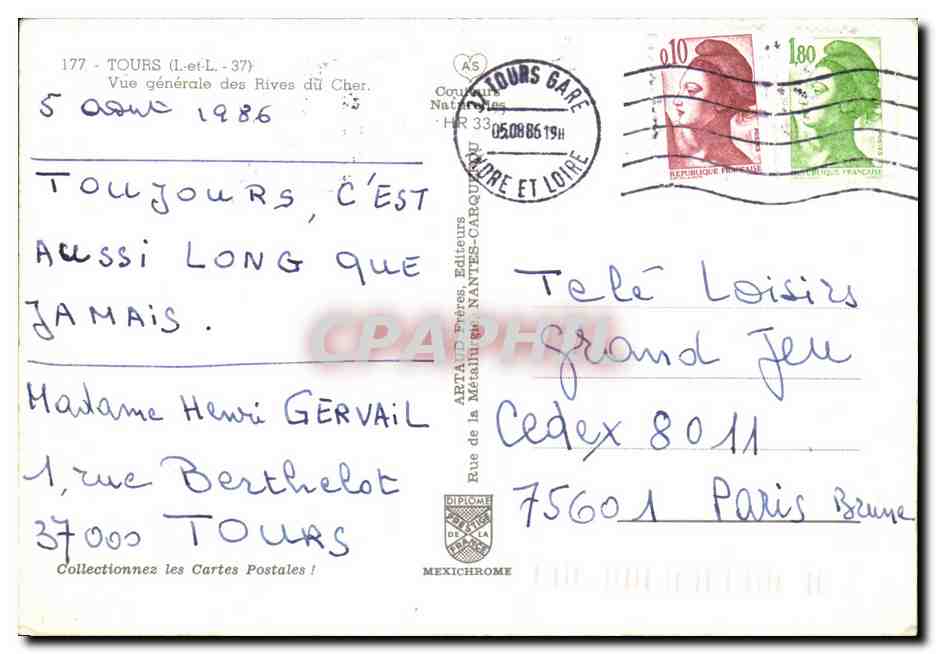 177 - TOURS (I.-et-L. - 37)
Vue générale des Rives du Cher.
5 aout 1986
TOUJOURS, C'EST
AUSSI LONG QUE
JAMAIS.
Madame Henri GERVAIL
1, rue Berthelot
37000 TOURS
Collectionnez les Cartes Postales !
AS
Couleurs
Naturelles
HR 33
ARTAUD Frères, Editeurs
Rue de la Métallurgie, NANTES-CARQUEFOU
DIPLOME
PRESTIGE
DE LA
FRANCE
MEXICHROME
TOURS GARE
05.08 86 19H
INDRE ET LOIRE
0,10
REPUBLIQUE FRANÇAISE
1,80
REPUBLIQUE FRANÇAISE
Telé Loisirs
Grand Jeu
Cedex 8011
75601 Paris Brune
CPAPHIL